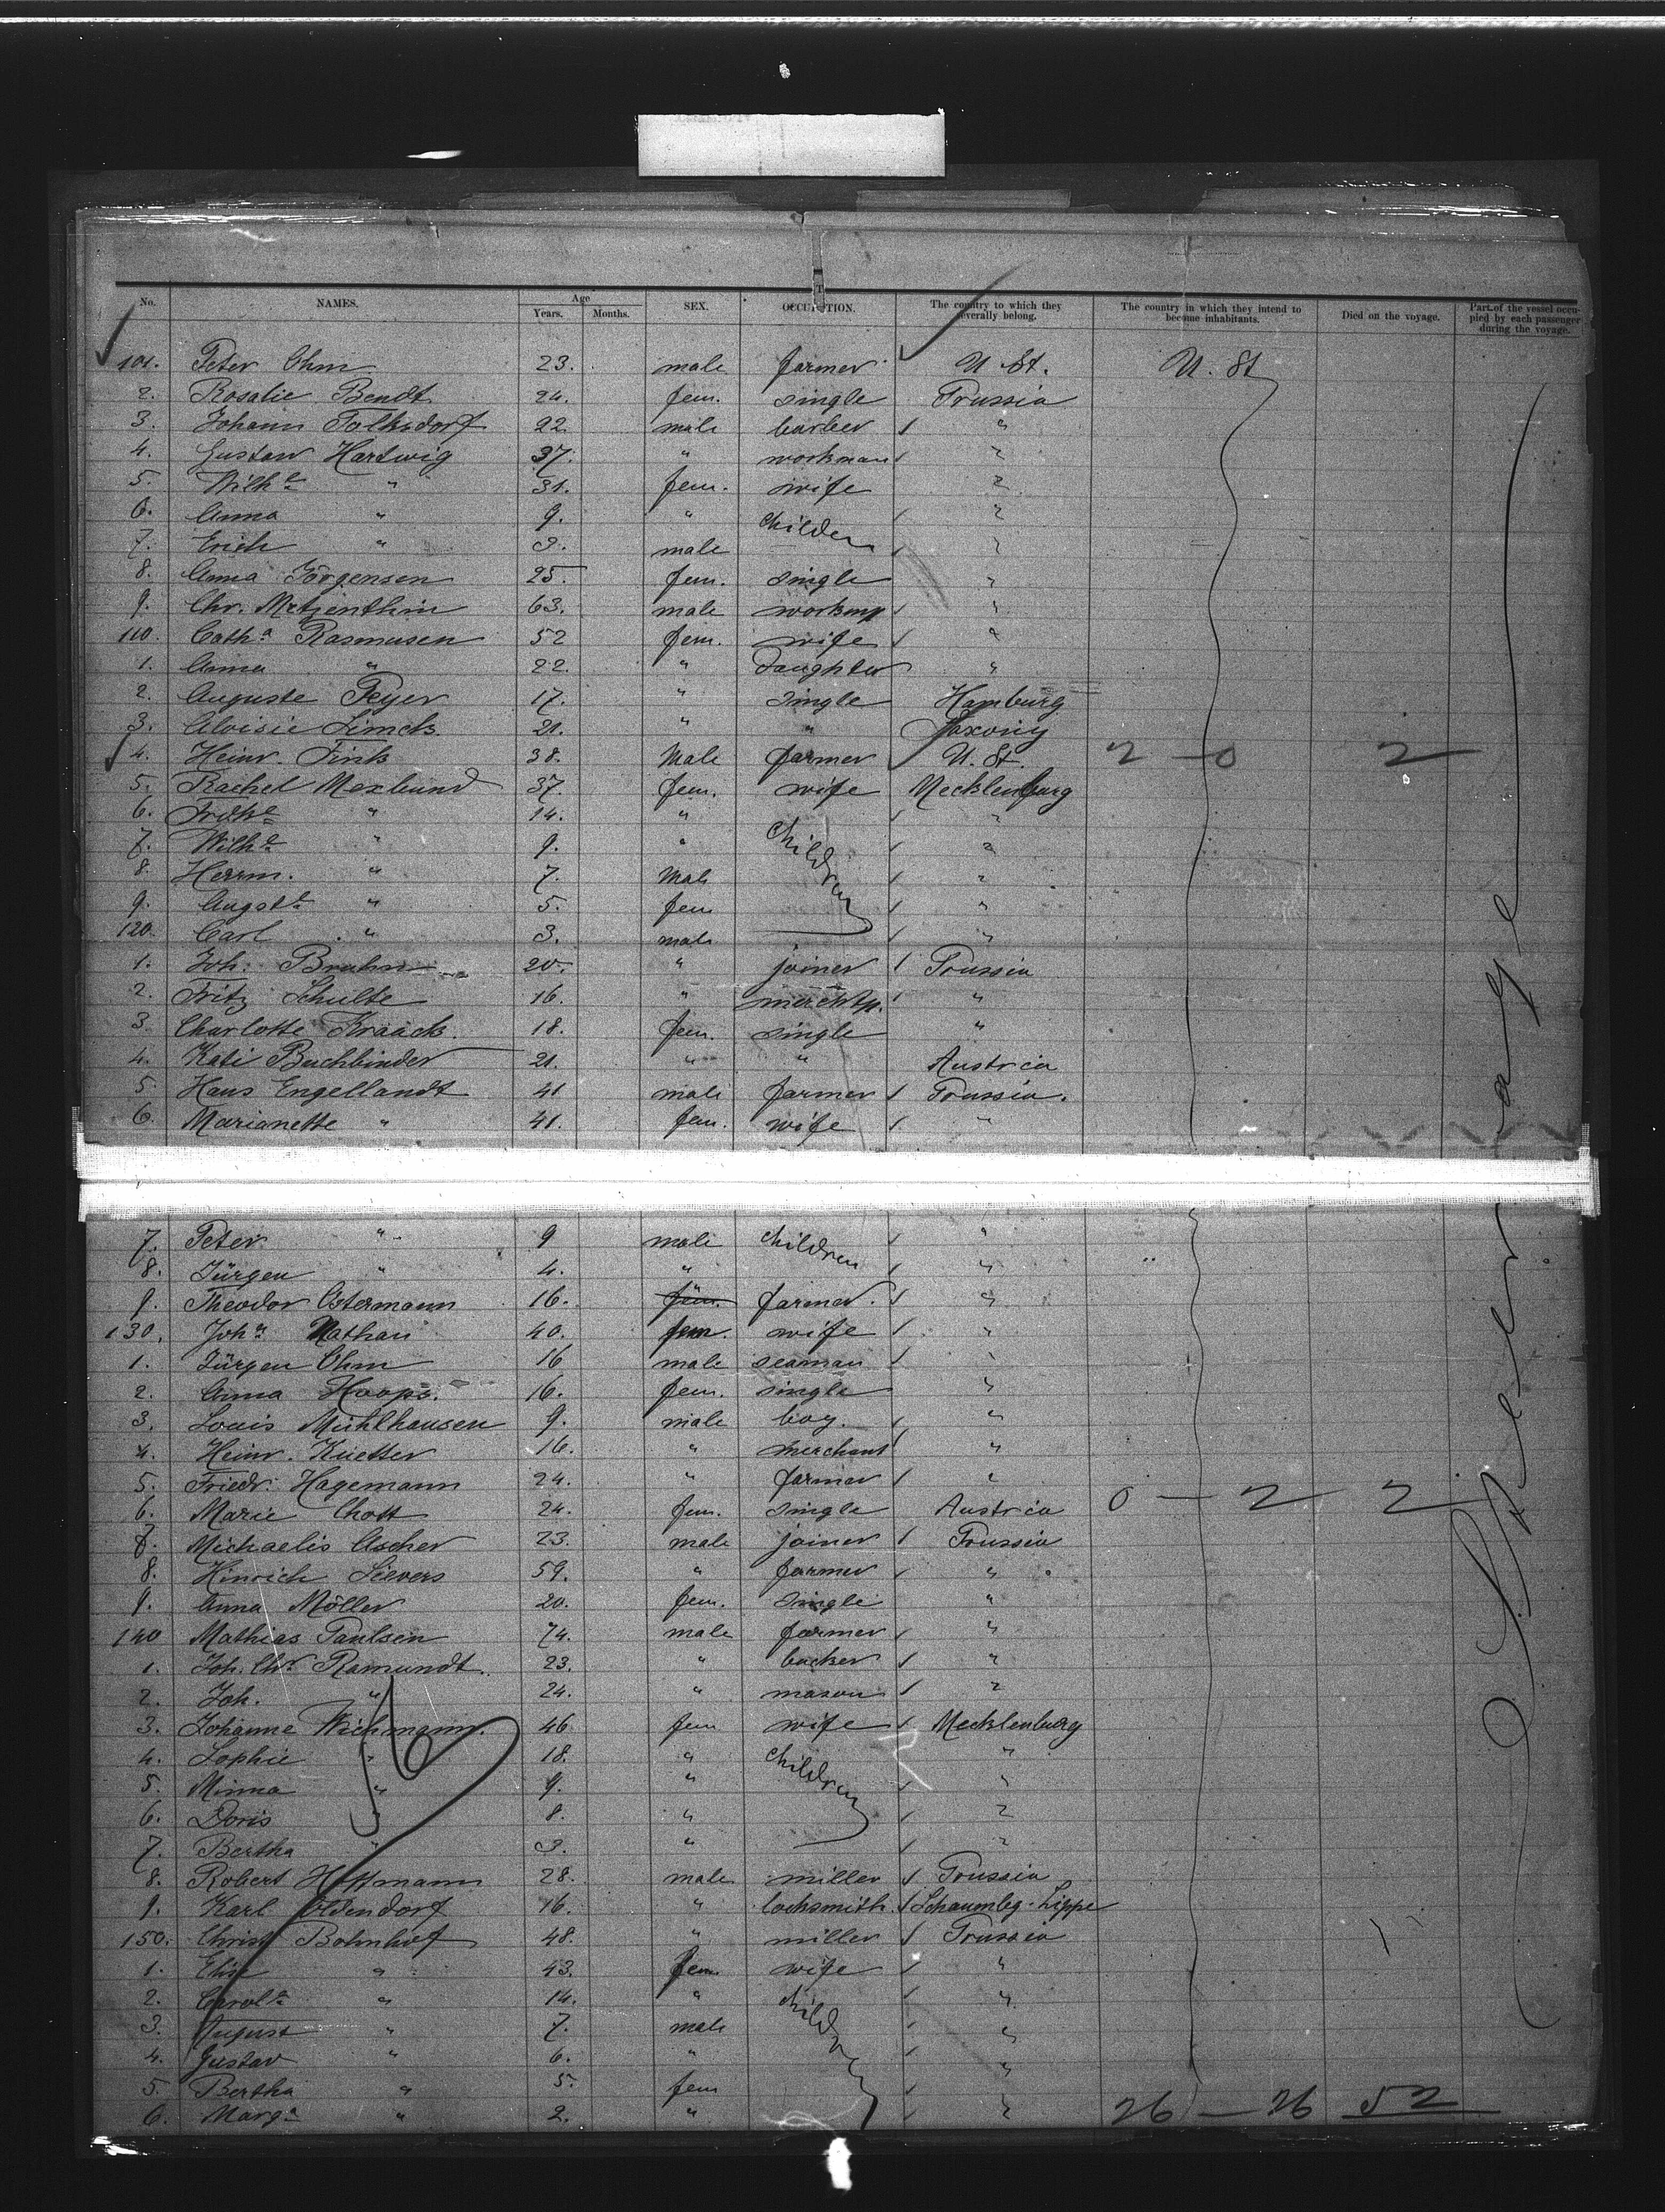 No. NAMES. Age Years. Months. SEX. OCCUPATION. The country to which they severally belong. The country in which they intend to become inhabitants. Died on the voyage. Part of the vessel occupied by each passenger during the voyage.
101. Peter Ohm 23. male farmer U. St. U. St
2. Rosalie Bendt 24. fem. single Prussia
3. Johann Folksdorf 22. male barber "
4. Gustav Hartwig 37. " workman "
5. Wilhe " 31. fem. wife "
6. Anna " 9. " children "
7. Erich " 3. male "
8. Anna Jörgensen 25. fem. single "
9. Chr. Metzenthin 63. male workm "
110. Catha Rasmusen 52 fem. wife "
1. Anna " 22. " Daughter "
2. Auguste Feyer 17. " single Hamburg
3. Aloisie Limck. 21. " " Saxony
4. Heinr. Fink 38. Male farmer U. St. 2 - 0 2
5. Rachel Mexlund 37. fem. wife Mecklenburg
6. Fridke " 14. " "
7. Wilhe " 9. " children "
8. Herrm. " 7. Male "
9. Augste " 5. fem "
120. Carl " 3. male "
1. Joh. Bruhn 20. " joiner Prussia
2. Fritz Schulte 16. " merchtp. "
3. Charlotte Kraack. 18. fem. single "
4. Kati Buchbinder 21. " " Austria
5. Hans Engellandt 41 male farmer Prussia.
6. Marianette " 41. fem. wife "
7. Peter " 9 male children "
8. Jürgen " 4. " "
9. Theodor Ostermann 16. fem. farmer. "
130. Joha Nathan 40. fem. wife "
1. Jürgen Ohm 16 male seaman "
2. Anna Hoops. 16. fem. single "
3. Louis Mühlhausen 9. male boy. "
4. Heinr. Kuetter 16. " merchant "
5. Friedr. Hagemann 24. " farmer "
6. Marie Chott 24. fem. single Austria 0 - 2 2
7. Michaelis Ascher 23. male joiner Prussia
8. Hinrich Sievers 59. " farmer "
9. Anna Möller 20. fem. single "
140 Mathias Paulsen 74. male farmer "
1. Joh. Chr Ramundt. 23. " backer "
2. Joh. " 24. " mason "
3. Johanne Wichmann. 46. fem wife Mecklenburg
4. Sophie " 18. " children "
5. Minna " 9. " "
6. Doris " 8. " "
7. Bertha " 3. " "
8. Robert Hoffmann 28. male miller Prussia
9. Karl Oldendorf 16. " locksmith. Schaumbg-Lippe
150. Christ Bohnhof 48. " miller Prussia
1. Elise " 43. fem. wife "
2. Carolte " 14. " children "
3. August " 7. male "
4. Gustav " 6. " "
5. Bertha " 5. fem "
6. Marga " 2. " " 26 - 26 52